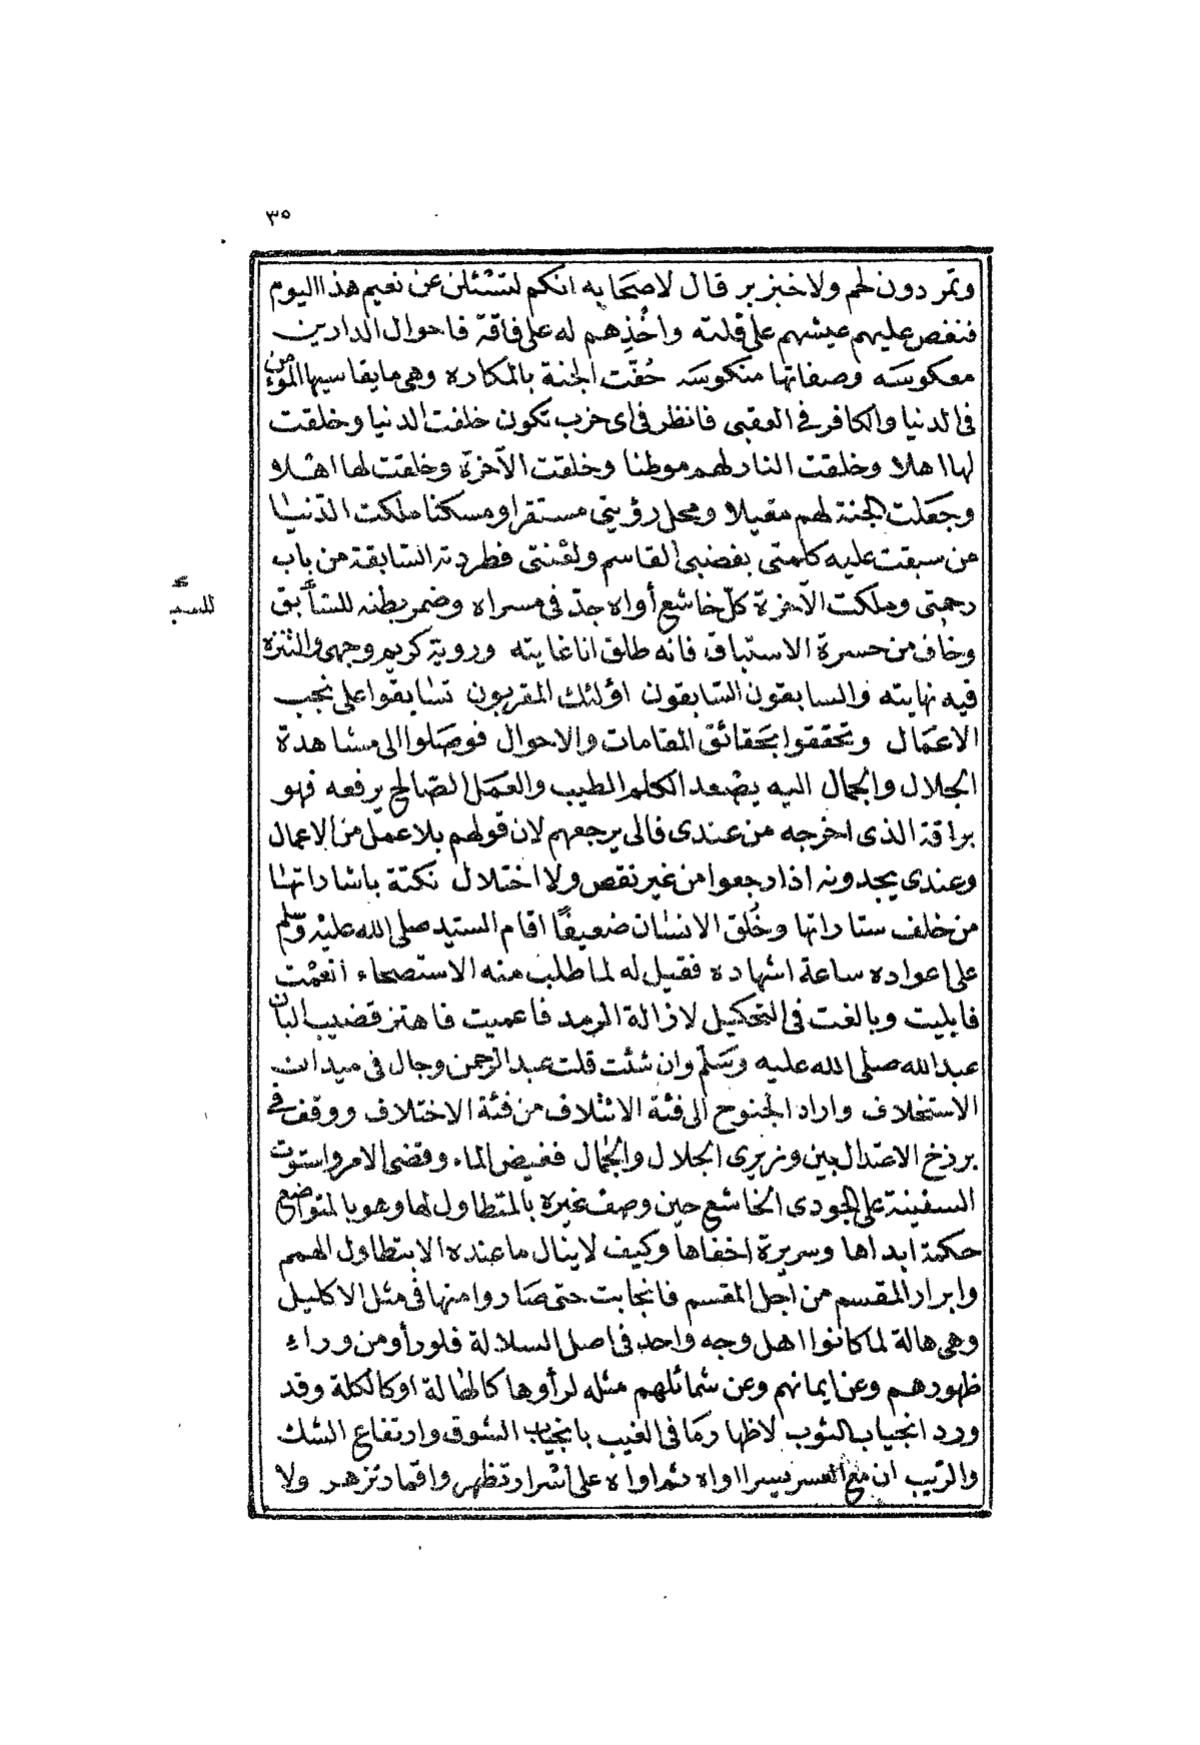 ٣٥
وتمر دون لحم ولا خبز بر قال لاصحابه انكم لتسئلن عن نعيم هذا اليوم
فنغص عليهم عيشهم على قلته واخذهم له على فاقة فاحوال الدارين
معكوسه وصفاتها منكوسه حُفّت الجنة بالمكاره وهى ما يقاسيها المؤمن
فى الدنيا والكافر فى العقبى فانظر فى اى حزب تكون خلقت الدنيا وخلقت
لها اهلا وخلقت النار لهم موطنا وخلقت الآخرة وخلقت لها اهلا
وجعلت الجنة لهم مقيلا ومحل رؤيتى مستقرا ومسكنا ملكت الدنيا
من سبقت عليه كلمتى بغضبى القاسم ولعنتى فطردته السابقة من باب
رحمتى وملكت الآخرة كلّ خاشع أواه جدّ فى مسراه وضمر بطنه للسّابق
للسبـ
وخاف من حسرة الاستباق فانه طلق انا غايته ورؤية كريم وجهى والتنزه
فيه نهايته والسابقون السّابقون اؤلئك المقربون تسابقوا على نجب
الاعمال وتحققوا بحقائق المقامات والاحوال فوصلوا الى مشاهدة
الجلال والجمال اليه يصعد الكلم الطيب والعمل الصّالح يرفعه فهو
براقة الذى اخرجه من عندى فالى يرجعهم لان قولهم بلا عمل من الاعمال
وعندى يجدونه اذا رجعوا من غير نقص ولا اختلال نكتة باشاراتها
من خلف ستاراتها وخُلق الانسان ضعيفًا اقام السيد صلى الله عليه وسلم
على اعواده ساعة اشهاده فقيل له لما طلب منه الاستصحاء أنعمت
فابليت وبالغت فى التحكيل لازالة الرمد فاعميت فاهتز قضيب البان
عبد الله صلى الله عليه وسَلّم وان شئت قلت عبد الرحمن وجال فى ميدان
الاستخلاف واراد الجنوح الى فئة الائتلاف من فئة الاختلاف ووقف فى
برزخ الاعتدال بين وزيرى الجلال والجمال فغيض الماء وقضى الامر واستوت
السفينة على الجودى الخاشع حين وصف غيره بالمتطاول لها وهو بالمتواضع
حكمة ابداها وسريرة اخفاها وكيف لا ينال ما عنده الا بتطاول الهمم
وابرار المقسم من اجل المقسم فانجابت حتى صاروا منها فى مثل الاكليل
وهى هالة لما كانوا اهل وجه واحد فى اصل السلالة فلو رأو من وراء
ظهورهم وعن ايمانهم وعن شمائلهم مثله لرأوها كالهالة او كالكلة وقد
ورد انجياب الثوب لاظهار ما فى الغيب بانجياب الشوق وارتفاع الشك
والرّيب ان مع العسر يسرا اواه ثم اواه على اسرار تظهر واقمار تزهر ولا